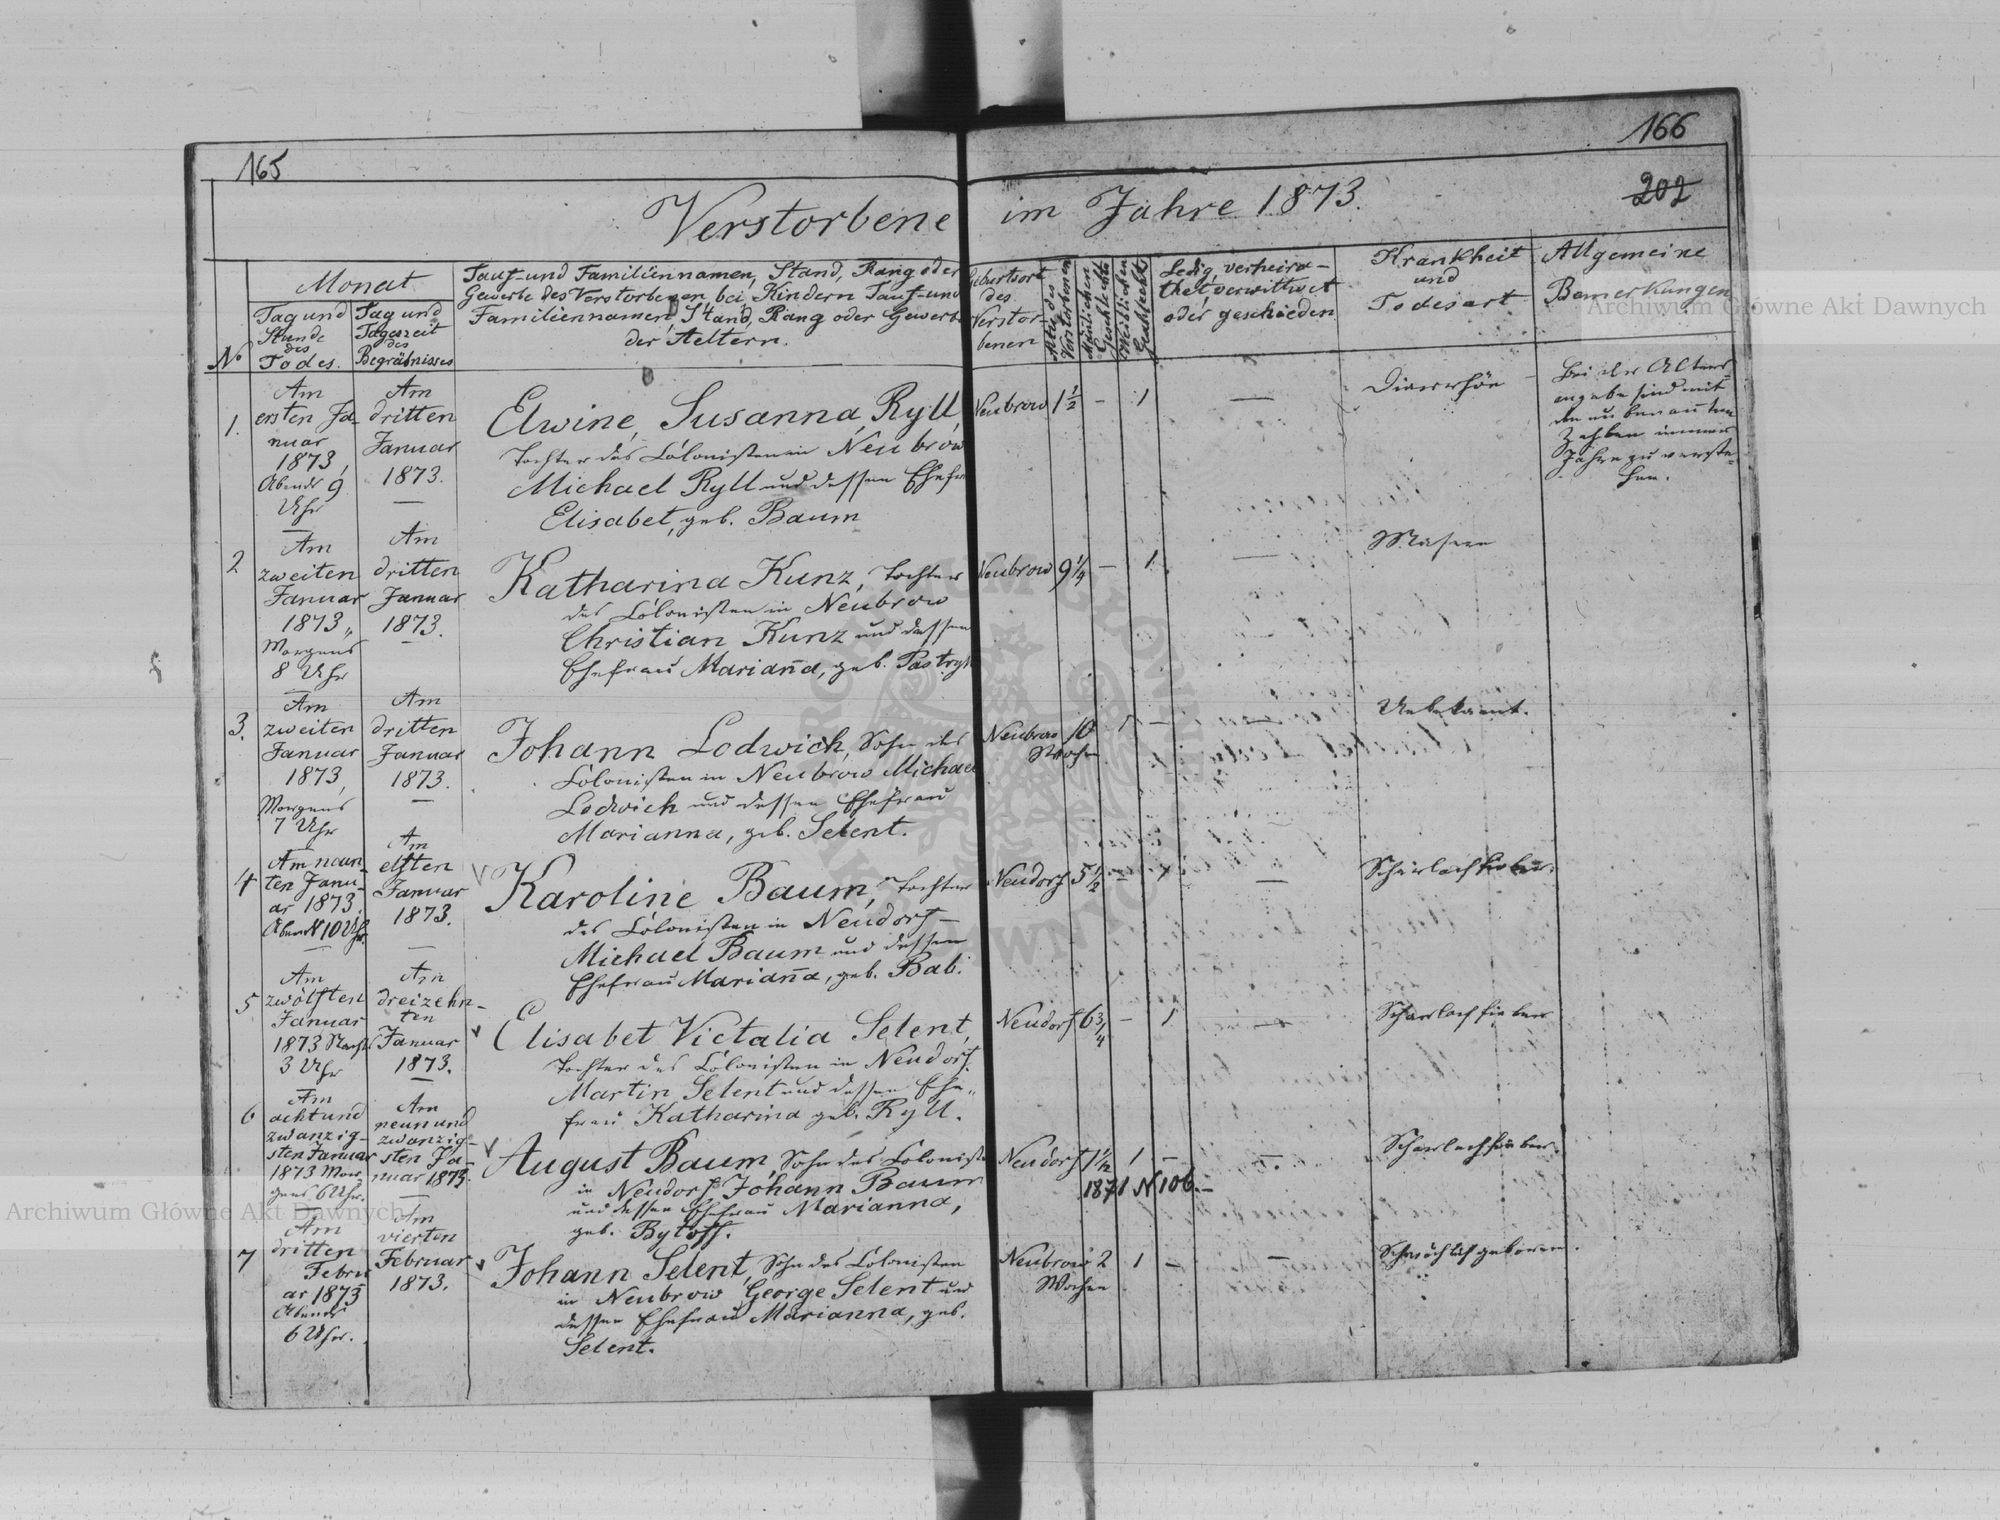 165
166
202
Verstorbene im Jahre 1873.
No
Monat
Tag und
Stunde
des
Todes.
Tag und
Tageszeit
des
Begräbnisses
Tauf- und Familiennamen, Stand, Rang oder
Gewerbe des Verstorbenen, bei Kindern Tauf- und
Familiennamen, Stand, Rang oder Gewerbe
der Aeltern.
Geburtsort
des
Verstor-
benen
Alter des
Verstorbenen
Mänlichen
Geschlechts
Weiblichen
Geschlechts
Ledig, verheira-
thet, verwitwet
oder geschieden
Krankheit
und
Todesart
Allgemeine
Bemerkungen
1.
Am
ersten Ja-
nuar
1873,
Abends 9
Uhr
Am
dritten
Januar
1873.
Elwine, Susanna, Ryll,
Tochter des Colonisten in Neubrow
Michael Ryll und dessen Ehefr
Elisabet, geb. Baum
Neubrow 1 1/2 – 1 —
Diarrhöe
Bei der Alters-
angabe sind mit
den
Zahlen immer
Jahre zu verste-
hen.
2
Am
zweiten
Januar
1873,
Morgens
8 Uhr
Am
dritten
Januar
1873.
Katharina Kunz, Tochter
des Colonisten in Neubrow
Christian Kunz und dessen
Ehefrau Marian̄a, geb. Pastryk
Neubrow 9 1/4 – 1. —
Masern
3.
Am
zweiten
Januar
1873,
Morgens
7 Uhr
Am
dritten
Januar
1873.
Johann Lodwich, Sohn des
Colonisten in Neubrow Michael
Lodwich und dessen Ehefrau
Marianna, geb. Selent.
Neubrow 10 1 – —
Wochen
Unbekannt.
4
Am neun-
ten Janu-
ar 1873.
Abends 10 Uhr.
Am
elften
Januar
1873.
Karoline Baum, Tochter
des Colonisten in Neudorf
Michael Baum und dessen
Ehefrau Marian̄a, geb. Bab.
Neudorf 5 1/2 – 1 —
Scharlachfieber.
5
Am
zwölften
Januar
1873 Nachts
3 Uhr
Am
dreizehn-
ten
Januar
1873.
Elisabet Victalia Selent,
Tochter des Colonisten in Neudorf
Martin Selent und dessen Ehe-
frau Katharina geb. Ryll.
Neudorf 6 3/4 – 1 —
Scharlachfieber
6
Am
achtund
zwanzig-
sten Januar
1873 Mor-
gens 6 Uhr.
Am
neunund
zwanzig-
sten Ja-
nuar 1873.
August Baum, Sohn des Colonisten
in Neudorf Johann Baum
und dessen Ehefrau Marianna,
geb. Bytoff.
Neudorf 1 1/2 1 – —
1871 N 106.
Scharlachfieber.
7
Am
dritten
Febru
ar 1873
Abends
6 Uhr.
Am
vierten
Februar
1873.
Johann Selent, Sohn des Colonisten
in Neubrow George Selent und
dessen Ehefrau Marianna, geb.
Selent.
Neubrow 2 1 – —
Wochen
Schwächlich geboren.
Archiwum Główne Akt Dawnych
Archiwum Główne Akt Dawnych